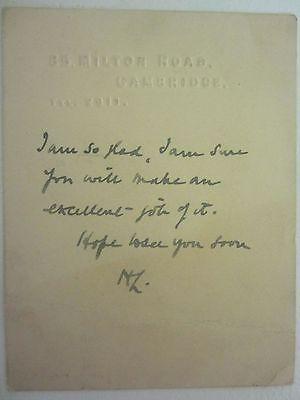 MILTON ROAD,
CAMBRIDGE.
I am so glad, I am sure
you will make an
excellent job of it.
Hope to see you soon